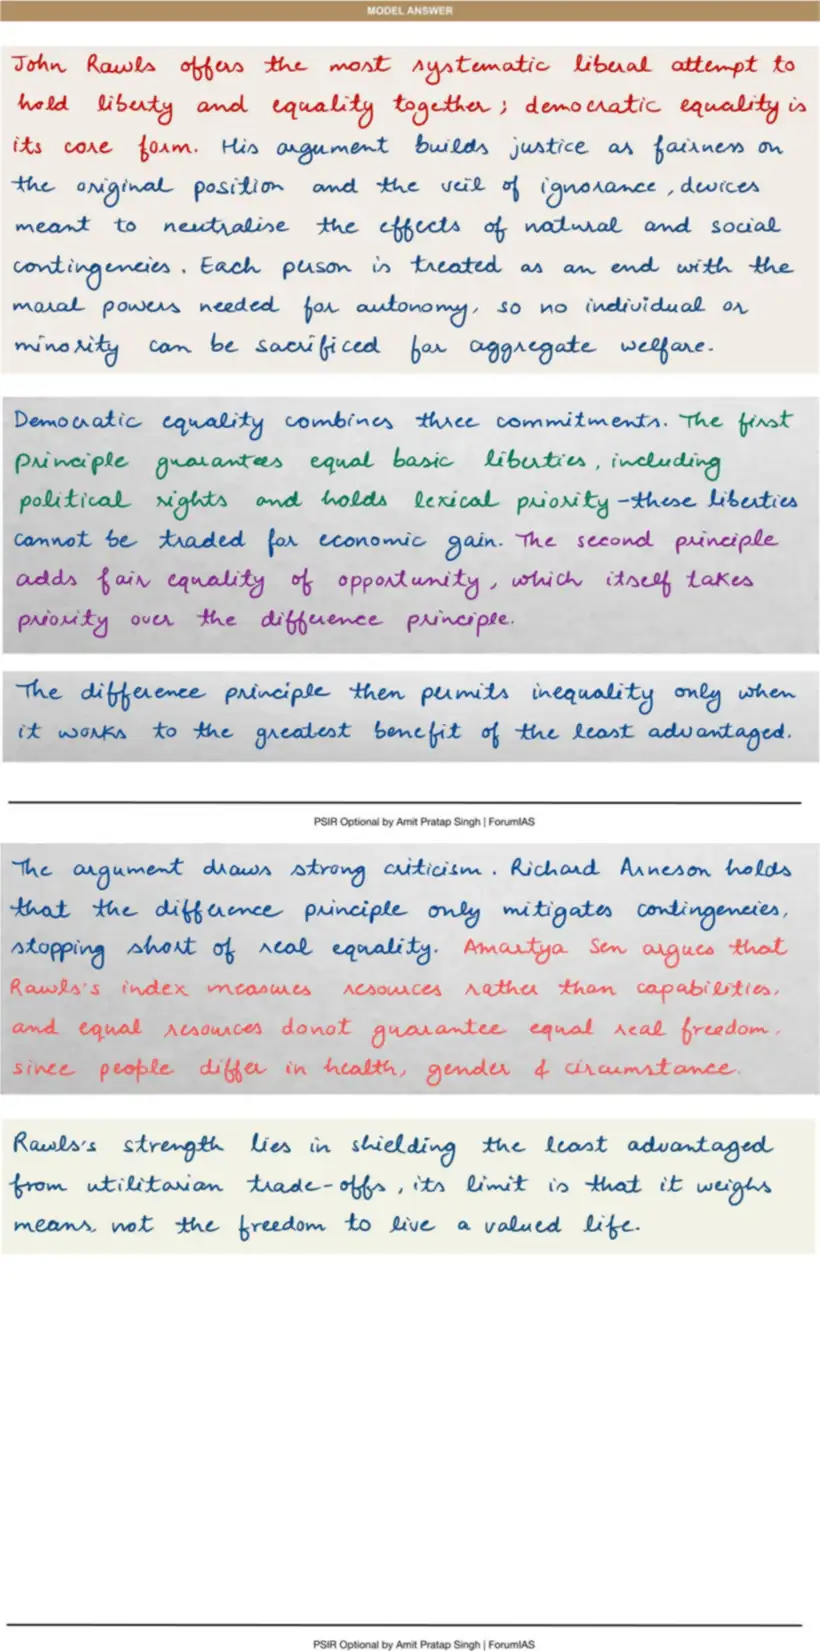 MODEL ANSWER
John Rawls offers the most systematic liberal attempt to
hold liberty and equality together; democratic equality is
its core form. His argument builds justice as fairness on
the original position and the veil of ignorance, devices
meant to neutralise the effects of natural and social
contingencies. Each person is treated as an end with the
moral powers needed for autonomy, so no individual or
minority can be sacrificed for aggregate welfare.
Democratic equality combines three commitments. The first
principle guarantees equal basic liberties, including
political rights and holds lexical priority - these liberties
cannot be traded for economic gain. The second principle
adds fair equality of opportunity, which itself takes
priority over the difference principle.
The difference principle then permits inequality only when
it works to the greatest benefit of the least advantaged.
PSIR Optional by Amit Pratap Singh | ForumIAS
The argument draws strong criticism. Richard Arneson holds
that the difference principle only mitigates contingencies,
stopping short of real equality. Amartya Sen argues that
Rawls's index measures resources rather than capabilities,
and equal resources donot guarantee equal real freedom,
since people differ in health, gender & circumstance.
Rawls's strength lies in shielding the least advantaged
from utilitarian trade-offs, its limit is that it weighs
means, not the freedom to live a valued life.
PSIR Optional by Amit Pratap Singh | ForumIAS